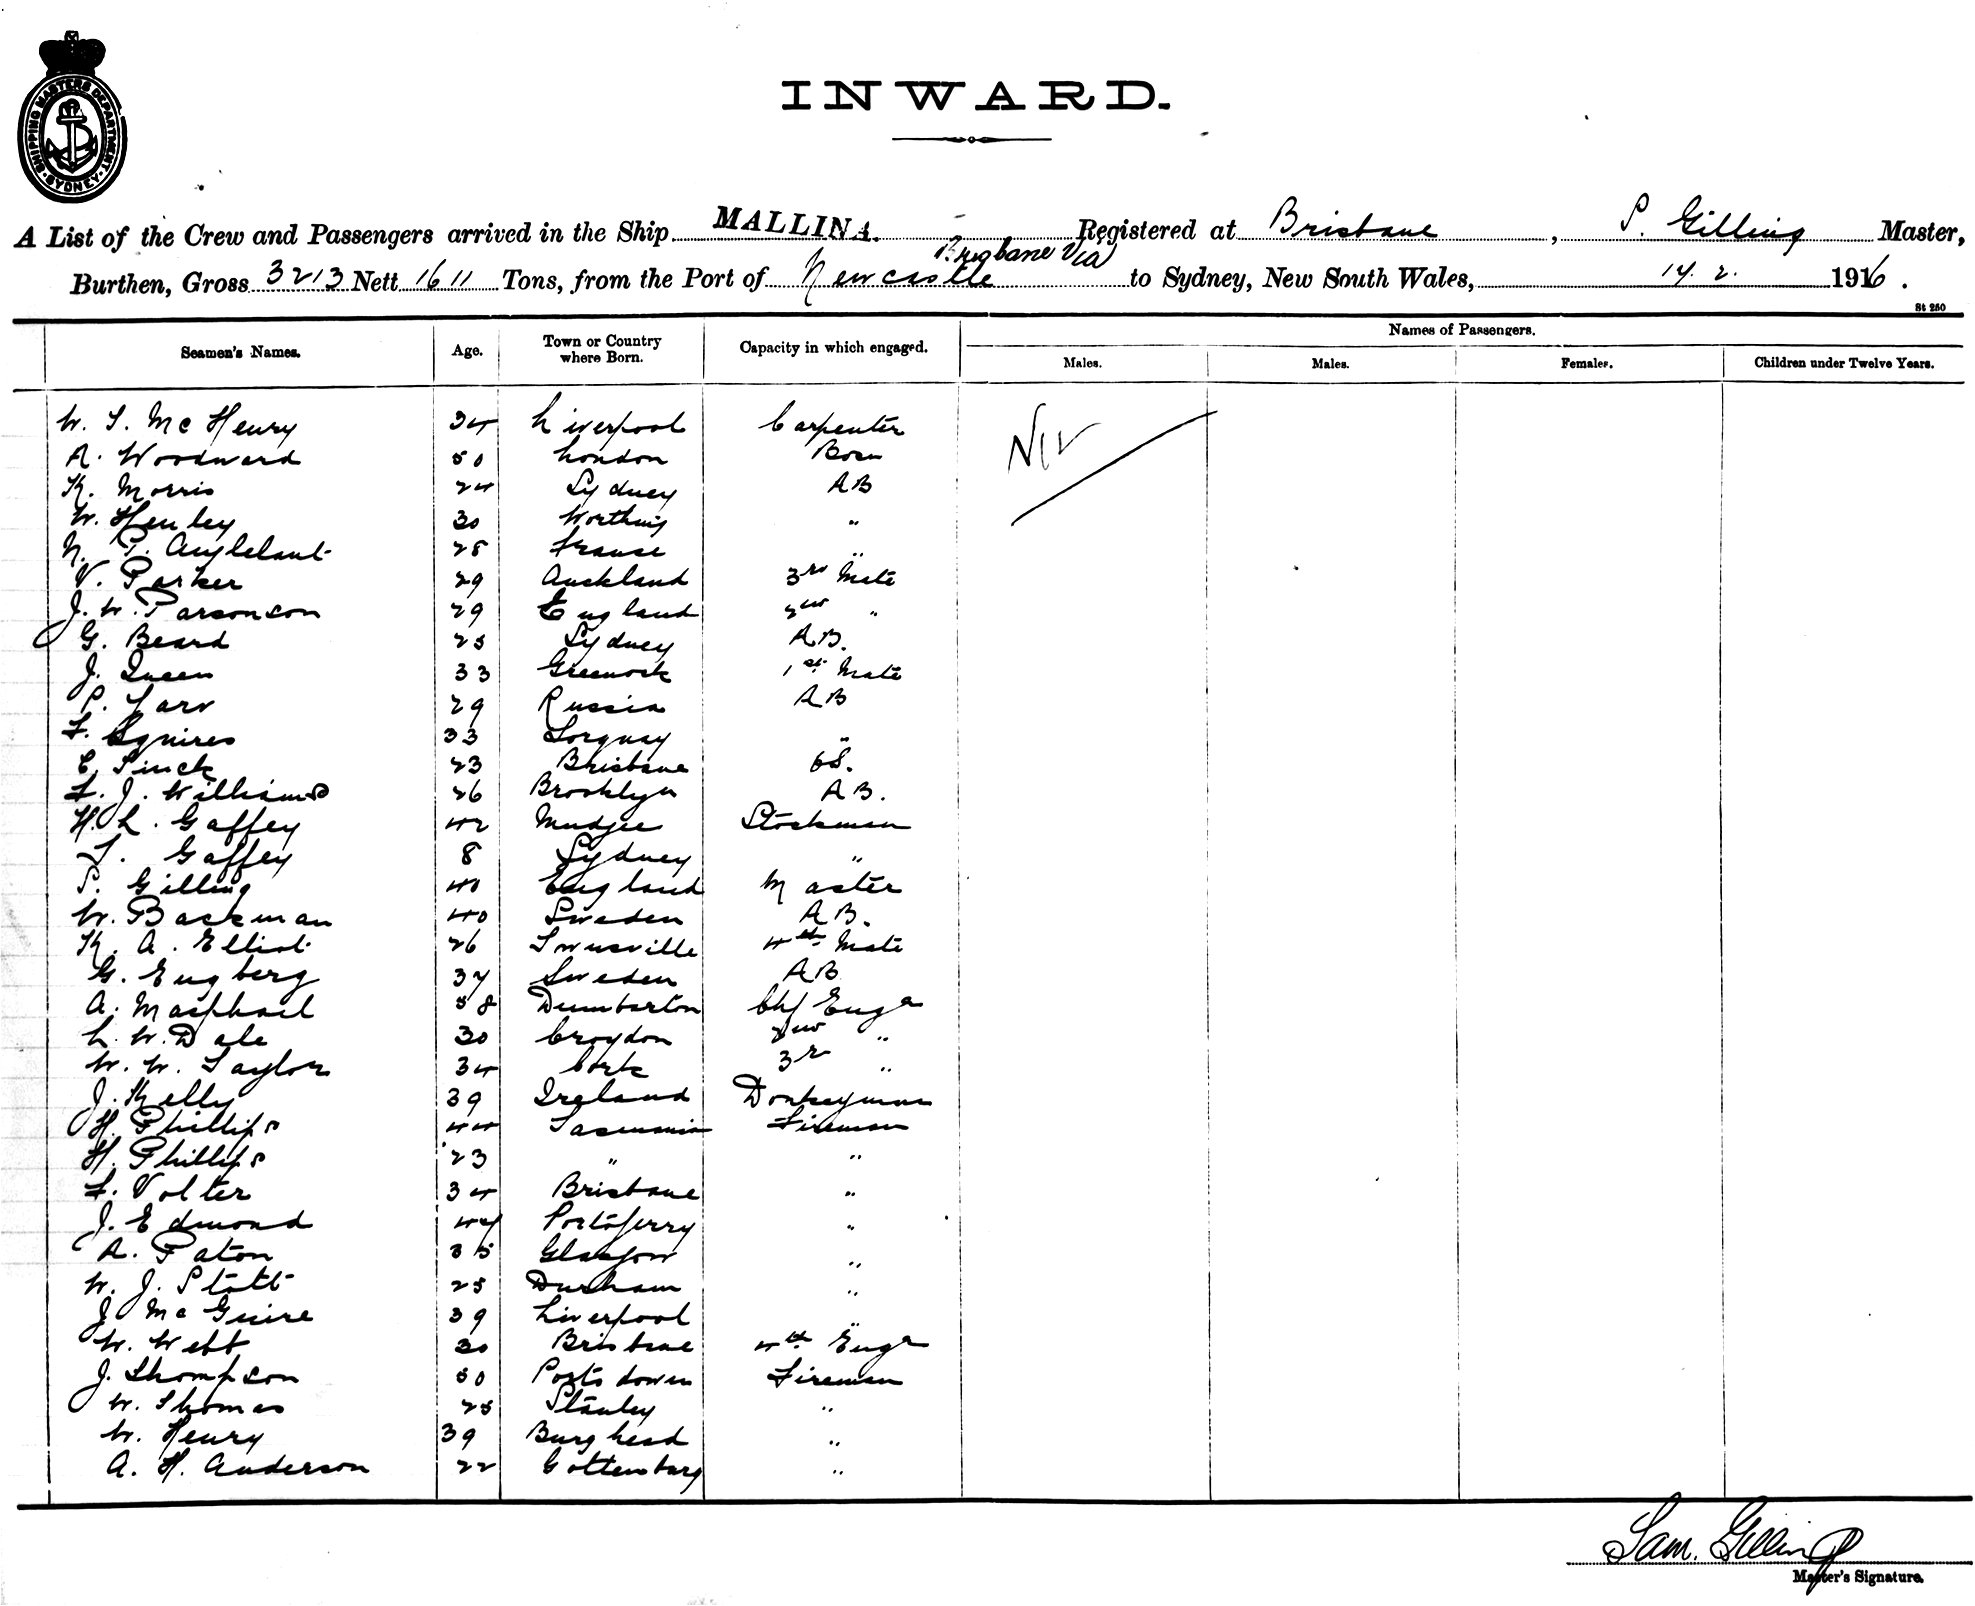 SHIPPING MASTERS DEPARTMENT
SYDNEY
INWARD.
A List of the Crew and Passengers arrived in the Ship MALLINA. Registered at Brisbane, S. Gilling Master,
Burthen, Gross 3213 Nett 1611 Tons, from the Port of Brisbane Via Newcastle to Sydney, New South Wales, 14. 2. 1916.
St 250
Seamen's Names. Age. Town or Country where Born. Capacity in which engaged. Names of Passengers.
Males. Males. Females. Children under Twelve Years.
W. S. McHenry 34 Liverpool Carpenter Nil
A. Woodward 50 London Bosn
K. Morris 24 Sydney AB
W. Henley 30 Worthing "
N. P. 28 France "
V. Parker 29 Auckland 3rd Mate
J. W. Parsonson 29 England 2nd "
G. Beard 25 Sydney A.B.
J. Queen 33 Greenock 1st Mate
P. 29 Russia AB
F. Squires 33 Torquay "
C. Finck 23 Brisbane OS.
F. J. Williams 26 Brooklyn AB.
H. L. Gaffey 42 Mudgee Stockman
T. Gaffey 8 Sydney "
S. Gilling 40 England Master
W. Backman 40 Sweden AB.
K. A. Elliot 26 Townsville 4th Mate
G. Engberg 37 Sweden AB
A. Macphail 58 Dumbarton Chf Engr
L. W. Dale 30 Croydon 2nd "
W. W. Taylor 34 Cork 3rd "
J. Kelly 39 Ireland Donkeyman
H. Phillips 44 Tasmania Fireman
H. Phillips 23 " "
F. Volter 34 Brisbane "
J. Edmond 47 Portaferry "
A. Paton 35 Glasgow "
W. J. Stott 25 Durham "
J. McGuire 39 Liverpool "
W. Webb 30 Brisbane 4th Engr
J. Thompson 50 Portsdown Fireman
W. Thomas 25 Stanley "
W. Henry 39 Burghead "
A. H. Anderson 22 Gottenburg "
Sam. Gilling
Master's Signature.